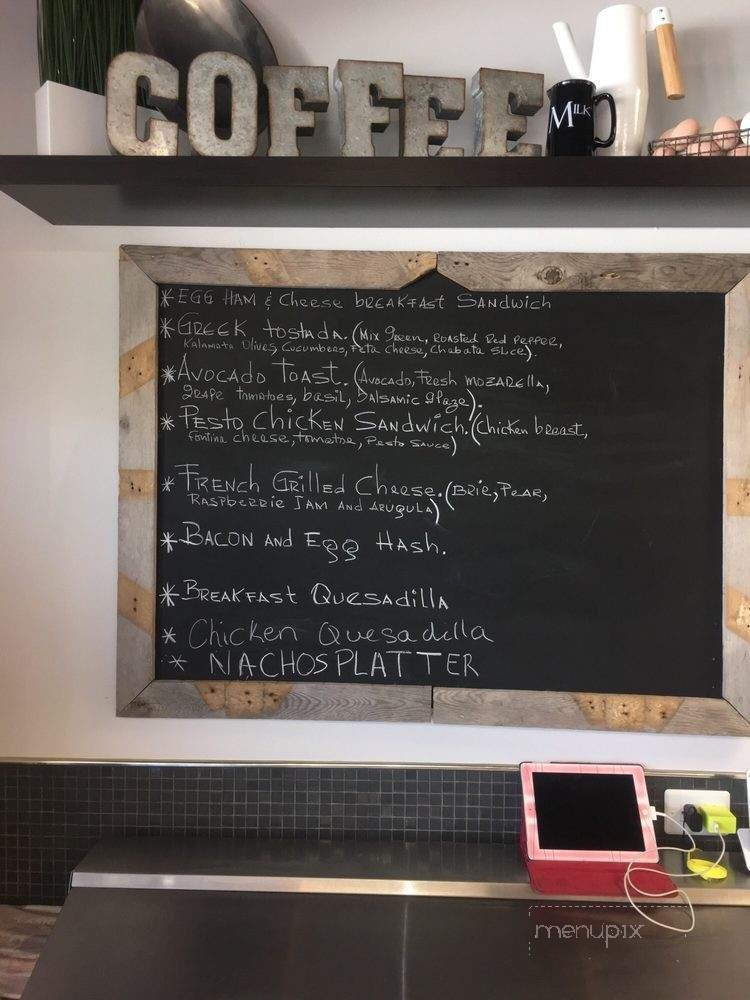 COFFEE
MILK
*EGG HAM & Cheese bREAKFAST SANDWich
*GREEK tOSTADA. (Mix Green, ROASTED RED PEPPER,
Kalamata Olives, Cucumbers, Feta Cheese, Chabata SLice).
*Avocado TOAST. (Avocado, FResh MOZARELLA,
grape tomatoes, basil, balsamic glaze).
*PESTO ChiCKEN SANDWich. (Chicken breast,
Fontina cheese, tomatoe, Pesto Sauce)
*FRENCH GRILLED Cheese. (BRIE, PEAR,
RASPbERRIE JAM AND ARUGULA)
*BACON AND Egg HASH.
*BREAKFAST QUESAdillA
* Chicken Quesadilla
* NACHOS PLATTER
menupix